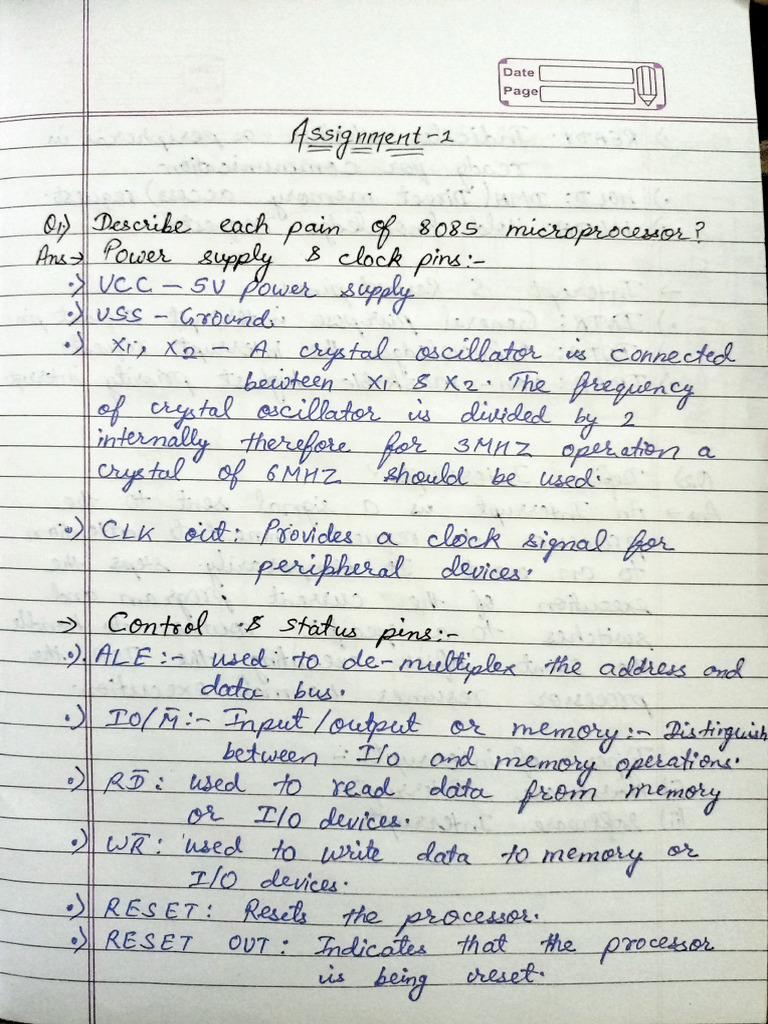 Date
Page
Assignment-1
Q1) Describe each pain of 8085 microprocessor?
Ans→ Power supply & clock pins:-
•) VCC - 5V Power supply
•) VSS - Ground.
•) X1, X2 - A crystal oscillator is connected
between X1 & X2. The frequency
of crystal oscillator is divided by 2
internally therefore for 3MHZ operation a
crystal of 6MHZ should be used.
•) CLK out: Provides a clock signal for
peripheral devices.
→ Control & status pins:-
•) ALE:- used to de-multiplex the address and
data bus.
•) IO/M̅:- Input/output or memory:- Distinguish
between I/O and memory operations.
•) RD̅: used to read data from memory
or I/O devices.
•) WR̅: used to write data to memory or
I/O devices.
•) RESET: Resets the processor.
•) RESET OUT: Indicates that the processor
is being reset.